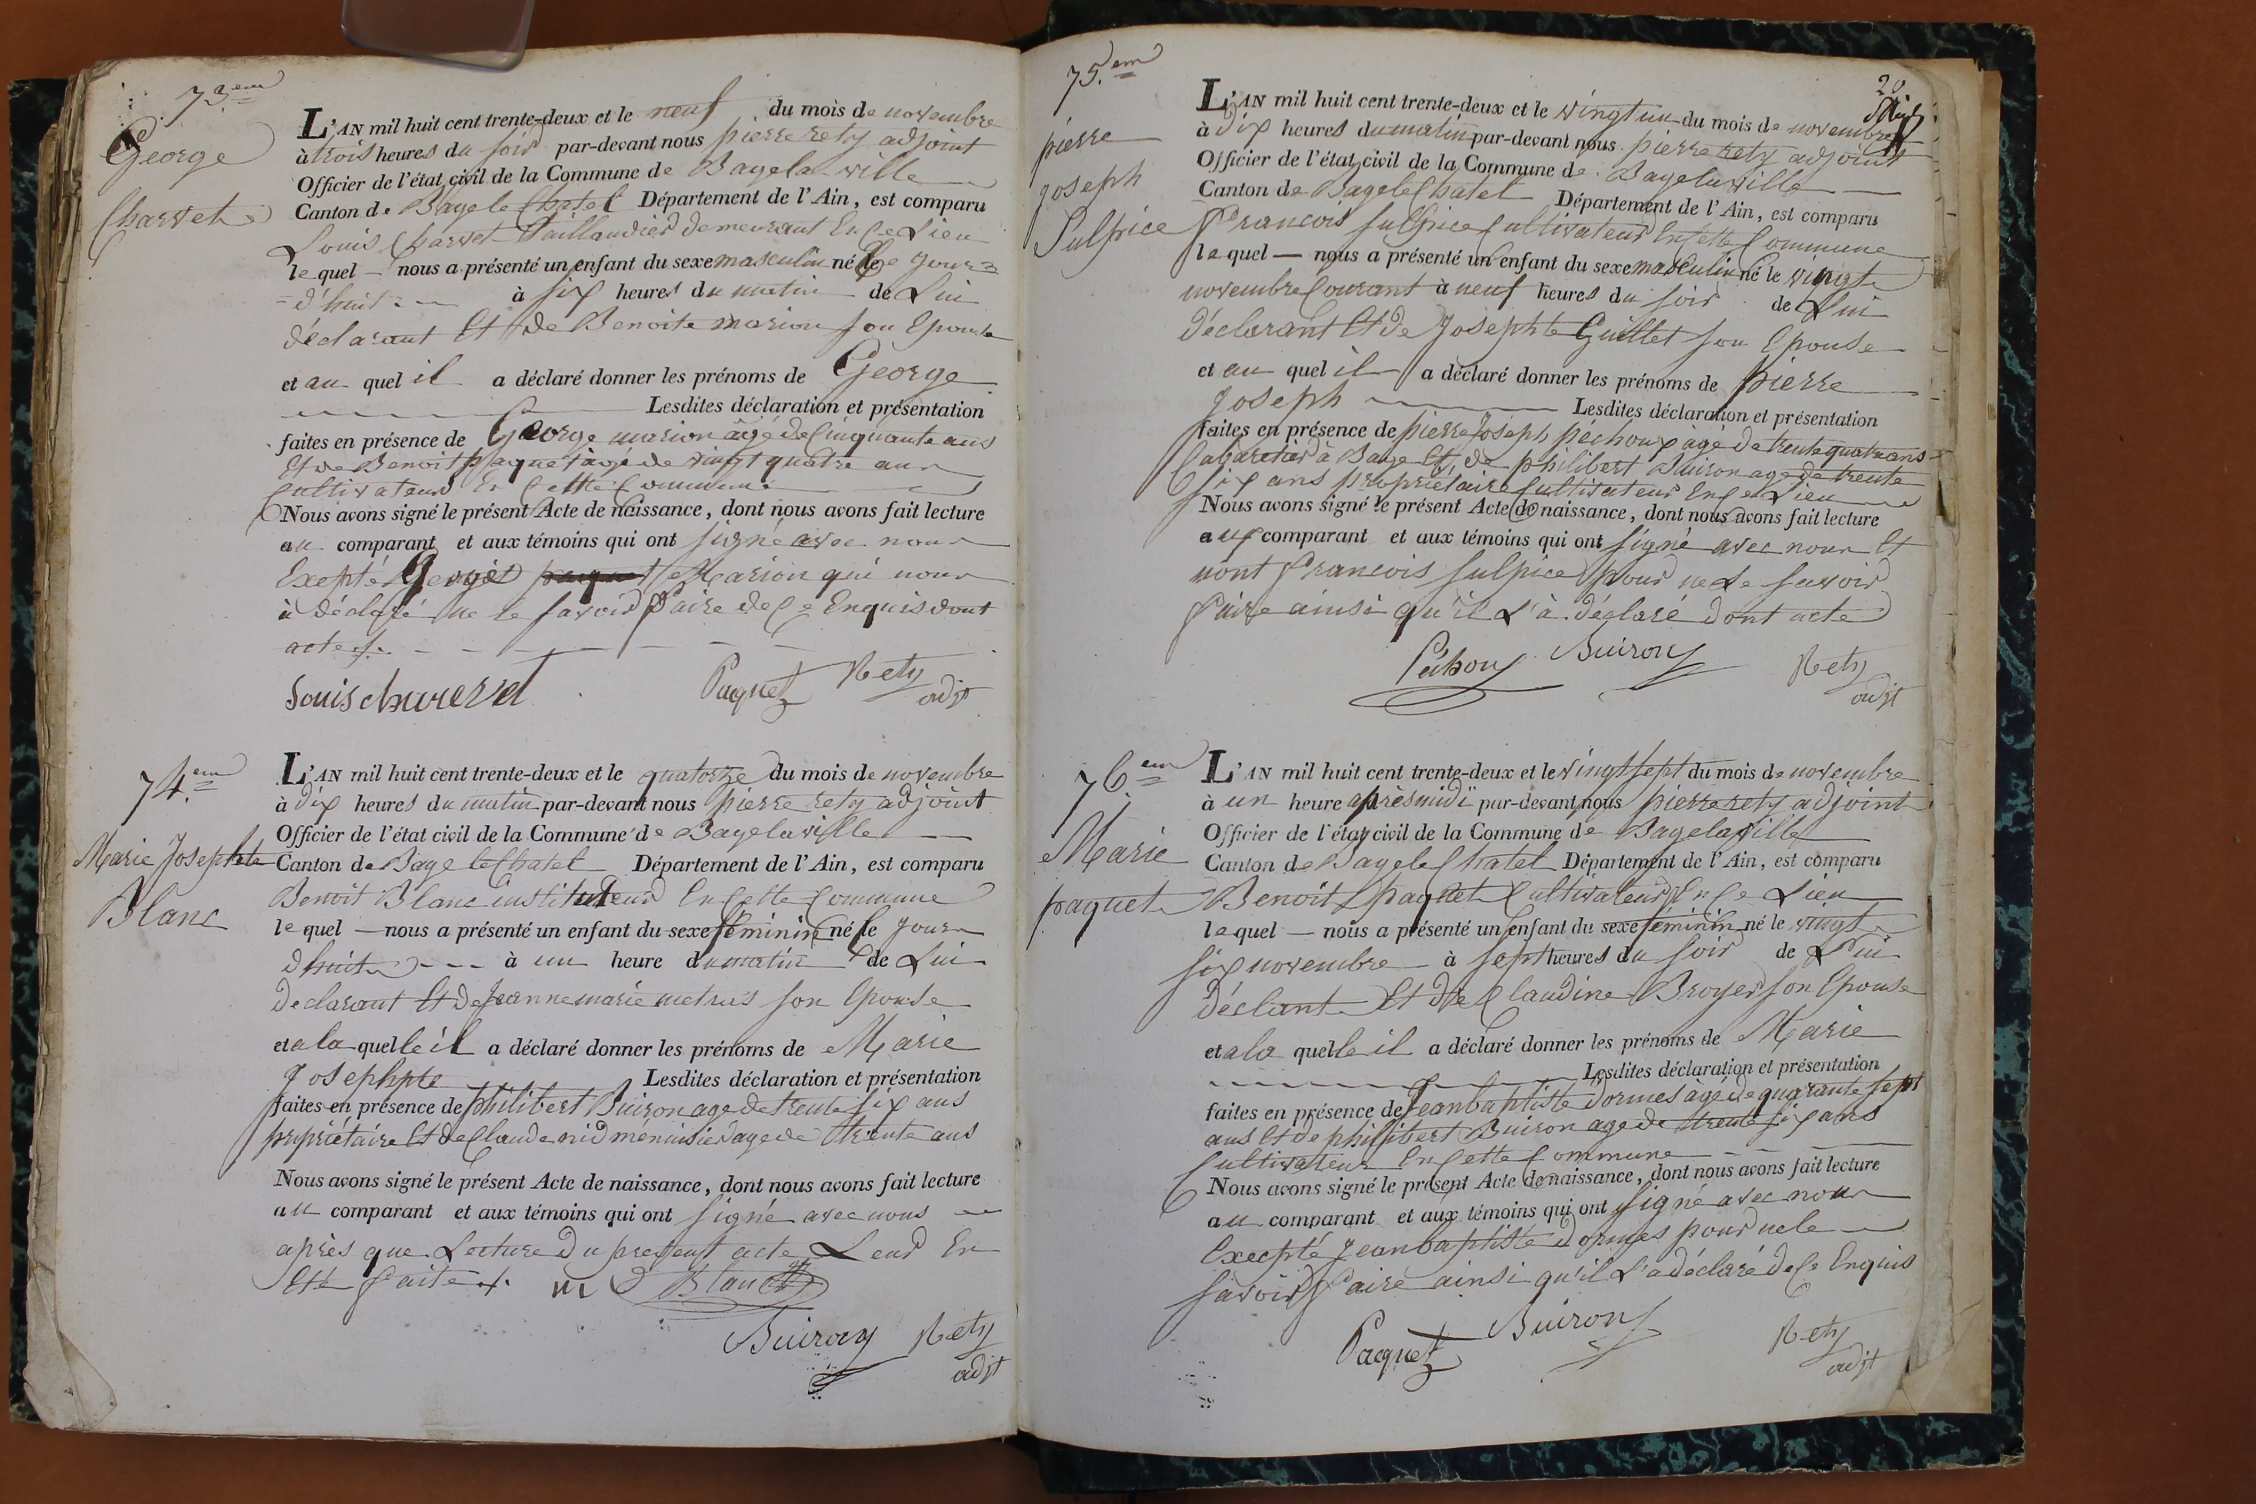 73.em
George
Charvet
L'AN mil huit cent trente-deux et le neuf du mois de novembre
à trois heures du soir par-devant nous pierre rety adjoint
Officier de l'état civil de la Commune de Bagelaville
Canton de Bagelechatel Département de l'Ain, est comparu
Louis Charvet taillandier demeurant En Ce Lieu
lequel — nous a présenté un enfant du sexe masculin né le Ce jour=
=d'huit à six heures du matin de Lui
déclarant Et de Benoite marion son Epouse
et au quel il a déclaré donner les prénoms de George
Lesdites déclaration et présentation
faites en présence de George marion âgé de Cinquante ans
Et de Benoit paquet âgé de vingt quatre ans
Cultivateurs En Cette Commune
Nous avons signé le présent Acte de naissance, dont nous avons fait lecture
au comparant et aux témoins qui ont signé avec nous
Exepté George paquet Marion qui nous
à déclaré ne le savoir faire de Ce Enquis dont
acte
Louis charvet Paquet Rety
adjt
74.em
Marie Josephte
Blanc
L'AN mil huit cent trente-deux et le quatorze du mois de novembre
à dix heures du matin par-devant nous pierre rety adjoint
Officier de l'état civil de la Commune de Bagelaville
Canton de Bage le Chatel Département de l'Ain, est comparu
Benoit Blanc instituteur En Cette Commune
lequel — nous a présenté un enfant du sexe féminin né le jour
d'huit --- à un heure du matin de Lui
declarant Et de jeanne marie metrus son Epouse
et a la quelle il a déclaré donner les prénoms de Marie
Josephpte Lesdites déclaration et présentation
faites en présence de philibert Buiron age de trente six ans
propriétaire Et de Claude nid ménuisier age de trente ans
Nous avons signé le présent Acte de naissance, dont nous avons fait lecture
au comparant et aux témoins qui ont signé avec nous
après que Lecture du present acte Leur En
Ett faite ni Blanc
Buiron Rety
adjt
75.em
pierre
joseph
Sulpice
20
L'AN mil huit cent trente-deux et le vingt un du mois de novembre
à Dix heures du matin par-devant nous pierre rety adjoint
Officier de l'état civil de la Commune de Bagelaville
Canton de Bagelechatel Département de l'Ain, est comparu
François Sulpice Cultivateur En Cette Commune
lequel — nous a présenté un enfant du sexe masculin né le vingt
novembre Courant à neuf heures du soir de Lui
déclarant Et de Josephte Guillet son Epouse
et au quel il a déclaré donner les prénoms de pierre
Joseph Lesdites déclaration et présentation
faites en présence de pierre joseph péchoux âge de trente quatre ans
Cabaretier à Bage Et de philibert Buiron age de trente
six ans propriétaire Cultivateur En Ce Lieu
Nous avons signé le présent Acte de naissance, dont nous avons fait lecture
aux comparant et aux témoins qui ont signé avec nous Et
nont François Sulpice pour ne Le savoir
faire ainsi qu'il L'à déclaré dont acte
Péchoux Buiron Rety
adjt
76.em
Marie
paquet
L'AN mil huit cent trente-deux et le vingt sept du mois de novembre
à un heure aprèsmidi par-devant nous pierre rety adjoint
Officier de l'état civil de la Commune de Bagelaville
Canton de Bagele Chatel Département de l'Ain, est comparu
Benoit paquet Cultivateur En Ce Lieu
lequel — nous a présenté un enfant du sexe féminin né le vingt
six novembre à sept heures du soir de Lui
déclant Et de Claudine Broyer son Epouse
et a la quelle il a déclaré donner les prénoms de Marie
Lesdites déclaration et présentation
faites en présence de Jeanbaptiste dormes àgé de quarante sept
ans Et de philibert Buiron age de trente six ans
Cultivateur En Cette Commune
Nous avons signé le présent Acte de naissance, dont nous avons fait lecture
au comparant et aux témoins qui ont signé avec nous
Execpté Jeanbaptiste dormes pour ne le
savoir faire ainsi qu'il L'a déclaré de Ce Enquis
Paquet Buiron Rety
adjt